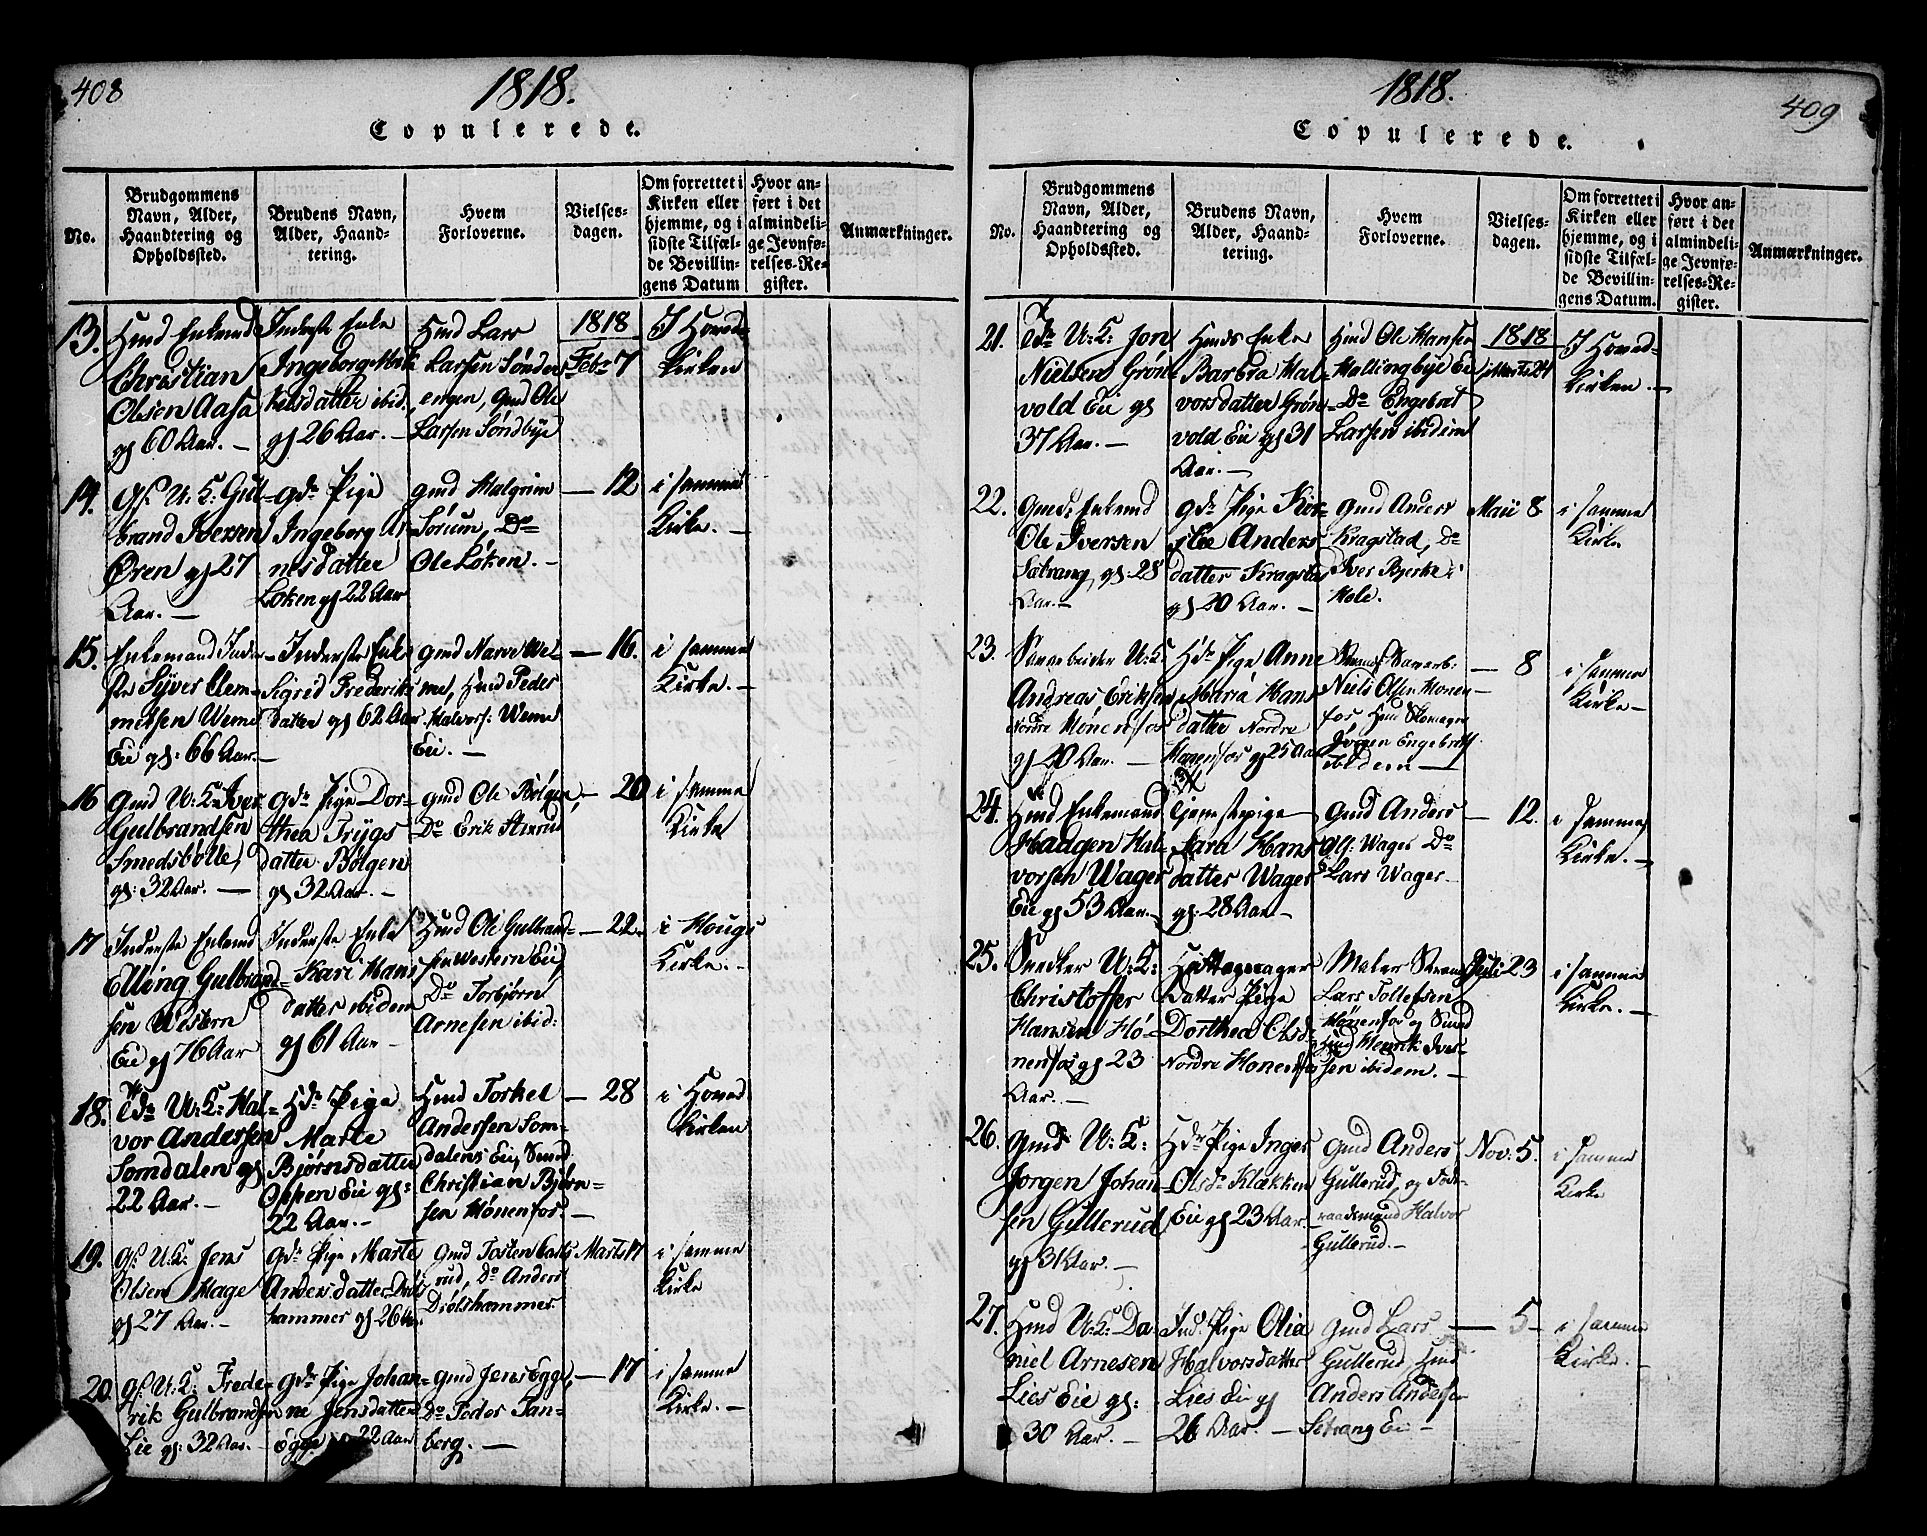 408
1818.
Copulerede.
No.
Brudgommens
Navn, Alder,
Haandtering og
Opholdssted.
Brudens Navn,
Alder, Haand-
tering.
Hvem
Forloverne.
Vielses-
dagen.
Om forrettet i
Kirken eller
hjemme, og i
sidste Tilfæl-
de Bevillin-
gens Datum
Hvor an-
ført i det
almindeli-
ge Jevnfø-
relses-Re-
gister.
Anmærkninger.
13.
Huusmd Enkemd
Christian
Olsen Aasa
gl 60 Aar. —
Inderste Enke
Ingeborg
ibid.
gl 26 Aar. —
Hmd Lars
Larsen Sønder
engen, Gmd Ole
Larsen Søndbye
1818
Febr 7
I Hoved
kirken
14.
Gs. U: K: Gul-
brand Iversen
Øren gl 27
Aar. —
Gdr Pige
Ingeborg Ar
nesdatter
Løken gl 22 Aar
Gmd Halgrim
Sørum, Do
Ole Løken. —
— 12
i samme
Kirke. —
15.
Enkemand Inder
ste Syver Clem-
metsen Weme
Eie gl: 66 Aar. —
Inderste Enke
Sigrid Frederiks
datter gl 62 Aar
Gmd Narve We-
me, Hmd Peder
Halvors: Weme
Eie. —
— 16.
i samme
Kirke. —
16
Gmd U: K: Iver
Gulbrandsen
Smedsbølle,
gl: 32 Aar. —
Gdr Pige Dor-
thea Trygs
datter Bølgen
gl 32 Aar. —
Gmd Ole Bølgen,
Do Erik
— 20
i samme
Kirke
17
Inderste Enkemd
Elling Gulbrand-
sen Western
Eie gl 76 Aar
Inderste Enke
Kari Hans
datter ibidem
gl 61 Aar —
Hmd Ole Gulbrand-
sen Western Eie,
Do Torbjørn
Arnesen ibid:
— 22.
i Hougs
Kirke. —
18.
U: K: Hal-
vor Andersen
Somdalen gl
22 Aar. —
Hdr Pige
Marte
Bjørnsdatter
Oppen Eie gl:
22 Aar. —
Hmd Torkel
Andersen Som-
dalens Eie, Smed
Christian Bjørn-
sen Hønenfos. —
— 28
i Hoved
Kirken
19.
Gs. U: K: Jens
Olsen Hage
gl 27 Aar. —
Gdr Pige Marte
Andersdatter
hammer gl 26 Aar.
Gmd Tosten
rud, Do Anders
Drolshammer.
Marts 17
i samme
Kirke
20.
Gs. U: K: Frede-
rik Gulbrandsen
Lie gl: 32 Aar. —
Gdr Pige Johan-
ne Jensdatter
Egge gl 22 Aar
Gmd Jens Egge,
Do Peder Tan-
berg. —
— 17
i samme
Kirke. —
409
1818.
Copulerede.
No.
Brudgommens
Navn, Alder,
Haandtering og
Opholdssted.
Brudens Navn,
Alder, Haand-
tering.
Hvem
Forloverne.
Vielses-
dagen.
Om forrettet i
Kirken eller
hjemme, og i
sidste Tilfæl-
de Bevillin-
gens Datum.
Hvor an-
ført i det
almindeli-
ge Jevnfø-
relses-Re-
gister.
Anmærkninger.
21.
U: K: Jon
Nielsen Grøn-
vold Eie gl
37 Aar. —
Hmds Enke
Barbra Hal-
vorsdatter Grøn-
vold Eie gl 31
Aar. —
Hmd Ole Hansen
Hallingbye Eie
Do Engebret
Larsen ibidem
1818
Marts 24
I Hoved-
kirken. —
22.
Gmd: Enkemd
Ole Iversen
Sætrang, gl: 28
Aar. —
Gdr Pige Kir-
stie Anders
datter Kragstad
gl 20 Aar. —
Gmd Anders
Kragstad, Do
Iver Bjerke i
Hole.
Maii 8
i samme
Kirke
23.
Saugarbeider U: K:
Andreas Eriksen
Nordre Hønenfos
gl 20 Aar. —
Hdr Pige Anne
Maria Hans
datter Nordre
Hønenfos gl 25 Aar
Niels Olsen Honen-
fos Hmd Skomager
Jørgen Engebrets
ibidem —
— 8
i samme
Kirke —
24.
Hmd Enkemand
Haagen Hal-
vorsen Wager
Eie gl 53 Aar. —
Tjenstepige
Sara Hans
datter Wager
gl: 28 Aar —
Gmd Anders
Wager Do
Lars Wager —
— 12.
i samme
Kirke. —
25.
Snedker U: K:
Christoffer
Hansen Hø-
nenfos gl 23
Aar. —
Hattemager
datter Pige
Dorthea Olsd:
Nordre Honenfos
Maler
Lars Tollefsen
Hønenfos og Smed
Henrik Iver-
sen ibidem. —
Juli 23
i samme
Kirke. —
26.
Gmd U: K:
Jørgen Johan-
sen Gullerud,
gl 31 Aar. —
Hdr Pige Inger
Olsdr Klækken
Eie gl 23 Aar. —
Gmd Anders
Gullerud, og
Halvor
Gullerud. —
Nov: 5.
i samme
Kirke
27.
Hmd U: K: Da
niel Arnesen
Lies Eie gl:
30 Aar. —
Ind. Pige Olia
Halvorsdatter
Lies Eie gl
26 Aar. —
Gmd Lars
Gullerud, Hmd
Anders Andersen
Setrang Eie —
— 5 —
i samme
Kirke. —